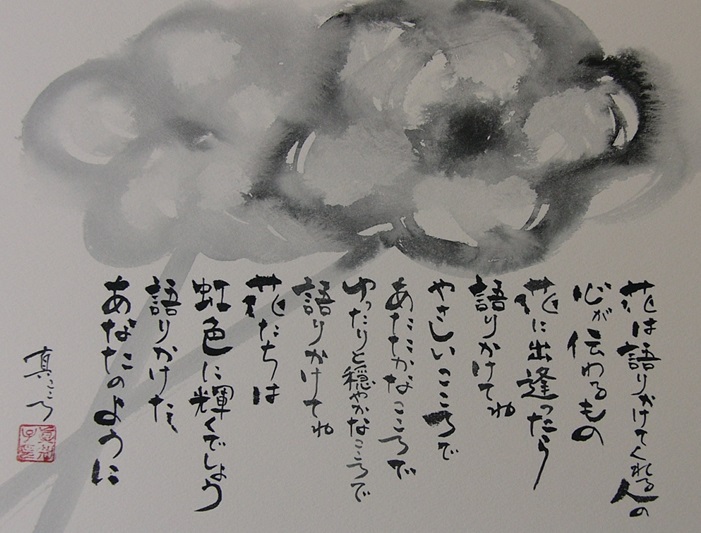 花は語りかけてくれる人の
心が伝わるもの
花に出逢ったら
語りかけてね
やさしいこころで
あたたかなこころで
ゆったりと穏やかなこころで
語りかけてね
花たちは
虹色に輝くでしょう
語りかけた
あなたのように
真こころ